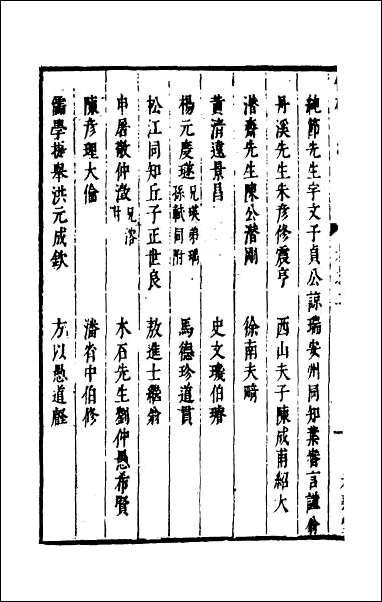 純節先生宇文子貞公諒 瑞安州同知葉審言謹翁
丹溪先生朱彥修震亨 西山夫子陳成甫紹大
潛齋先生陳公潛剛 徐南夫畸
黃清遠景昌 史文璣伯璿
楊元慶璲兄瑛弟瑀孫軾同附 馬德珍道貫
松江同知丘子正世良 敖進士繼翁
申屠敬仲澂兄溶 木石先生劉仲愚希賢
陳彥理大倫 潘省中伯修
儒學提舉洪元成欽 方以愚道壡